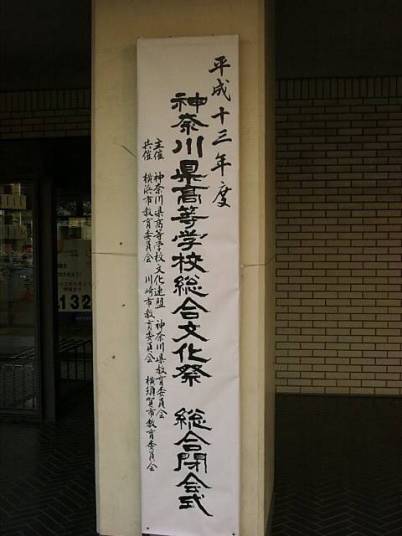 平成十三年度
神奈川県高等学校総合文化祭 総合閉会式
主催 神奈川県高等学校文化連盟 神奈川県教育委員会
共催 横浜市教育委員会 川崎市教育委員会 横須賀市教育委員会
132